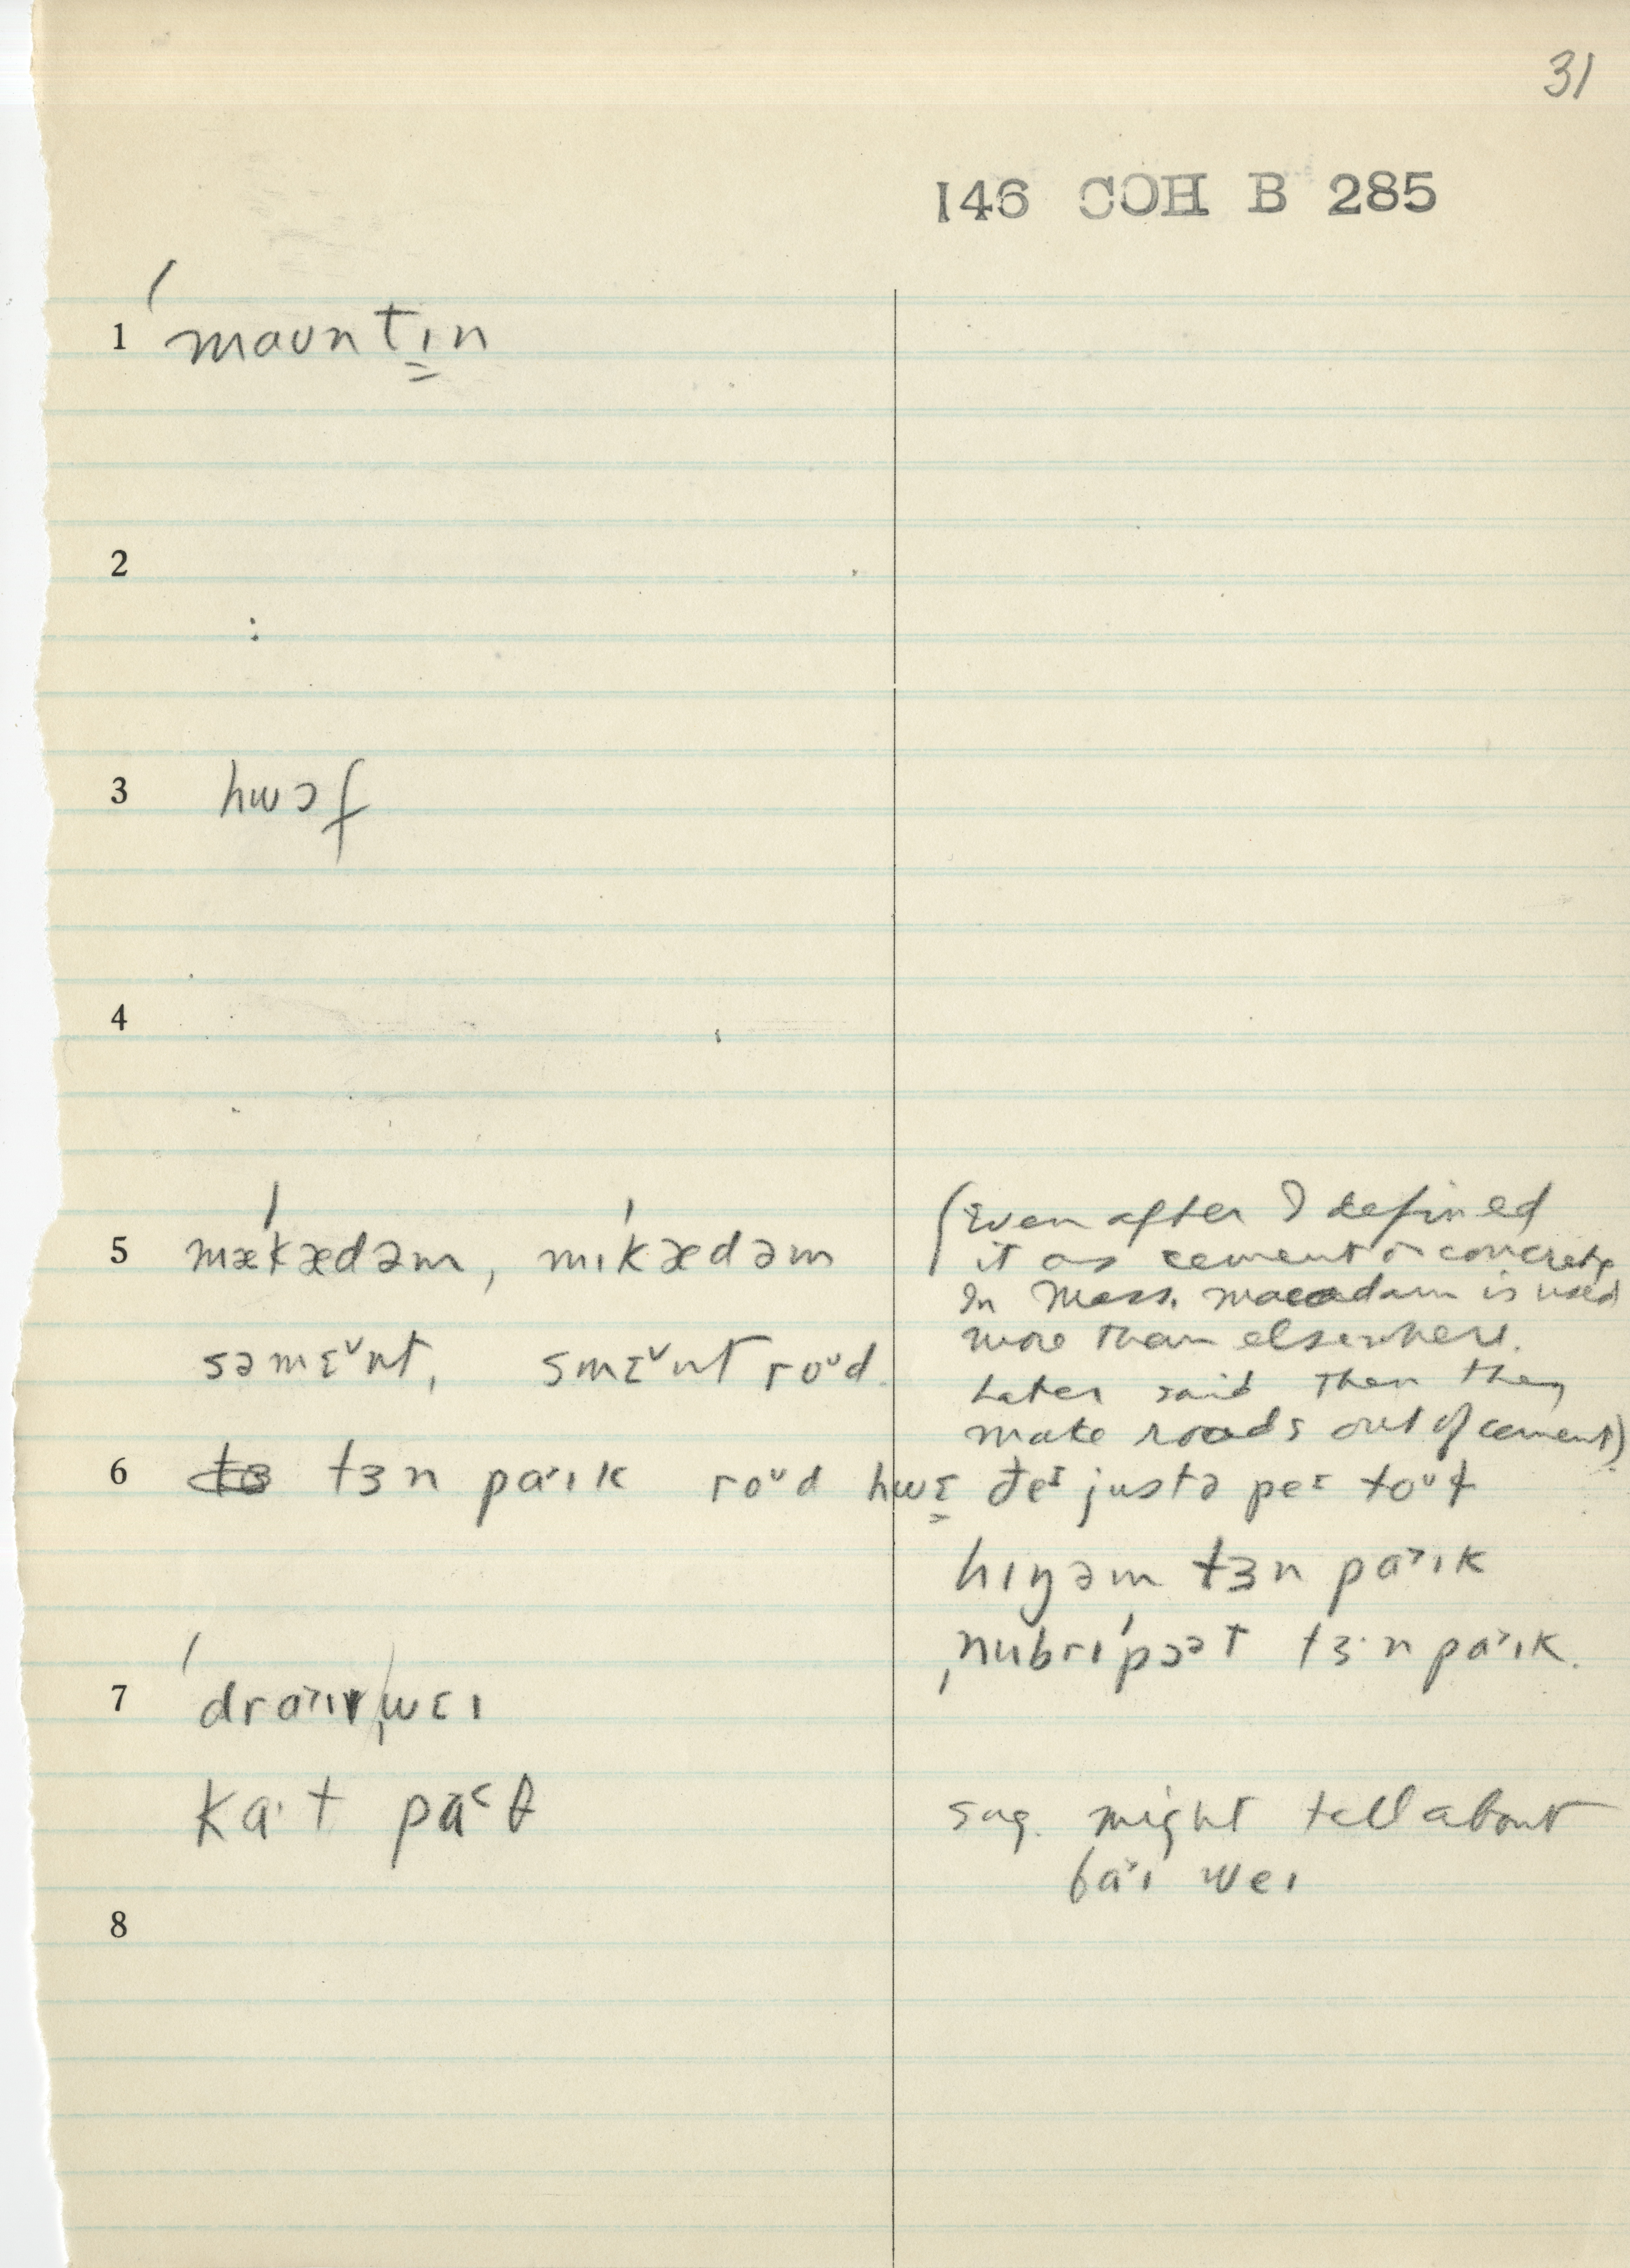 31
146 COH B 285
1 ˈmaʊntɪ̳n
2
3 hwɔf
4
5 mæˈkædəm, mɪˈkædəm
səmɛ˅nt, smɛ˅nt roᵘd.
(Even after I defined
it as cement or concrete
In Mass. macadam is used
more than elsewhere.
Later said then they
make roads out of cement)
6 tɜn pa˃ɪk roᵘd hwɛ̳ ðeɪ justə peɪ toᵘɫ
hɪŋəm tɜn pa˃ɪk
ˌnubrɪˈpɔət tɜ·n pa˃ɪk.
7 ˈdra˃ɪvˌwɛɪ
ka·t pa˂θ
sug. might tell about
ba˃ɪ weɪ
8